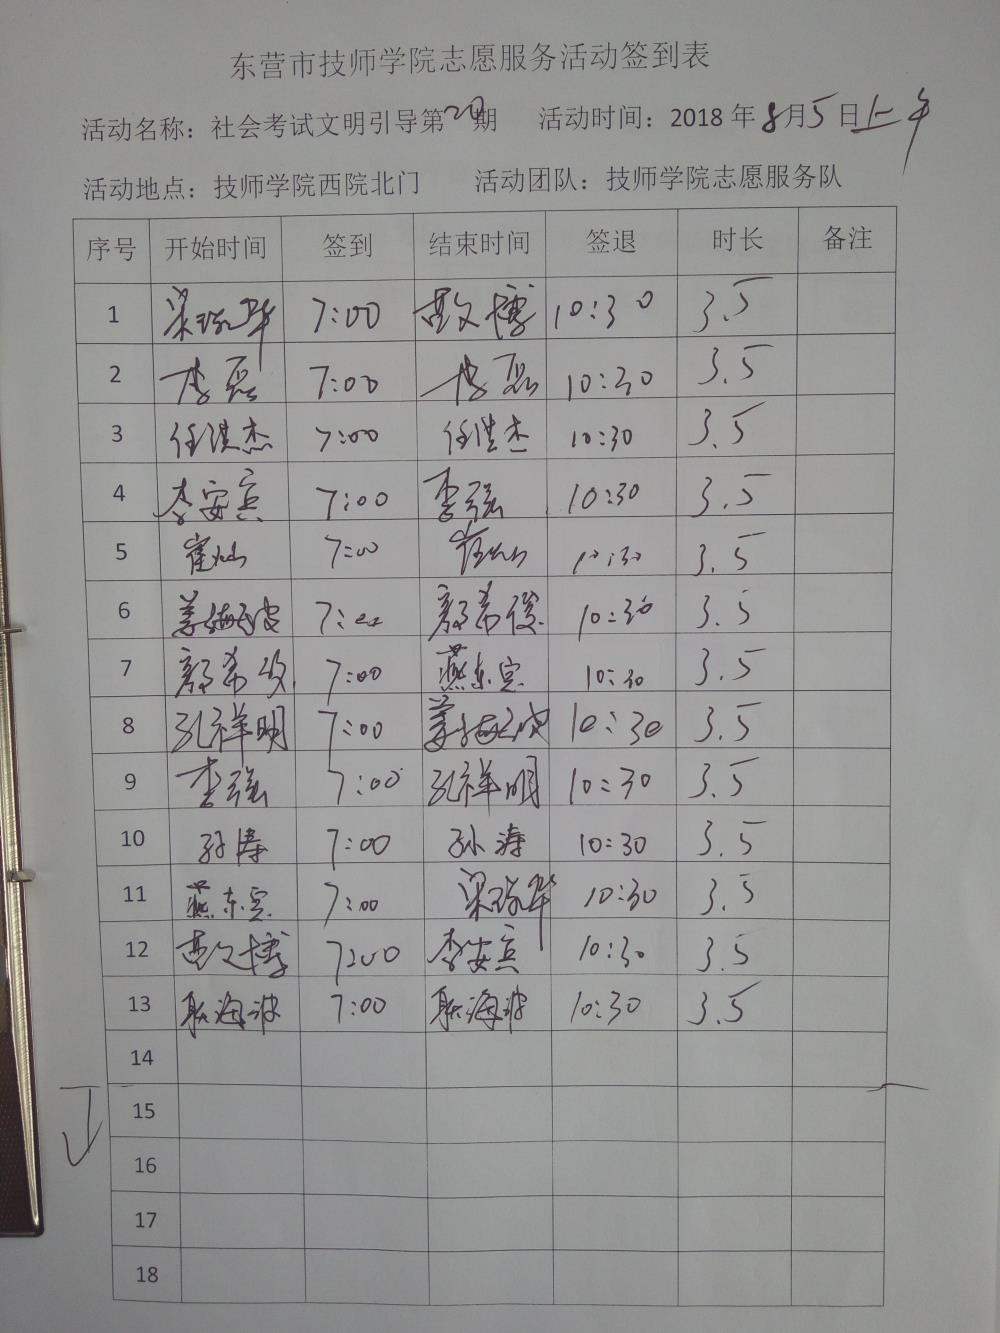 东营市技师学院志愿服务活动签到表
活动名称：社会考试文明引导第20期 活动时间：2018年8月5日上午
活动地点：技师学院西院北门 活动团队：技师学院志愿服务队
序号 开始时间 签到 结束时间 签退 时长 备注
1 7:00 10:30 3.5
2 李磊 7:00 李磊 10:30 3.5
3 任洪杰 7:00 任洪杰 10:30 3.5
4 李安宾 7:00 李强 10:30 3.5
5 崔灿 7:00 崔灿 10:30 3.5
6 7:00 10:30 3.5
7 7:00 燕东宾 10:30 3.5
8 孔祥明 7:00 10:30 3.5
9 李强 7:00 孔祥明 10:30 3.5
10 孙涛 7:00 孙涛 10:30 3.5
11 燕东宾 7:00 10:30 3.5
12 7:00 李安宾 10:30 3.5
13 耿海波 7:00 耿海波 10:30 3.5
14
15
16
17
18